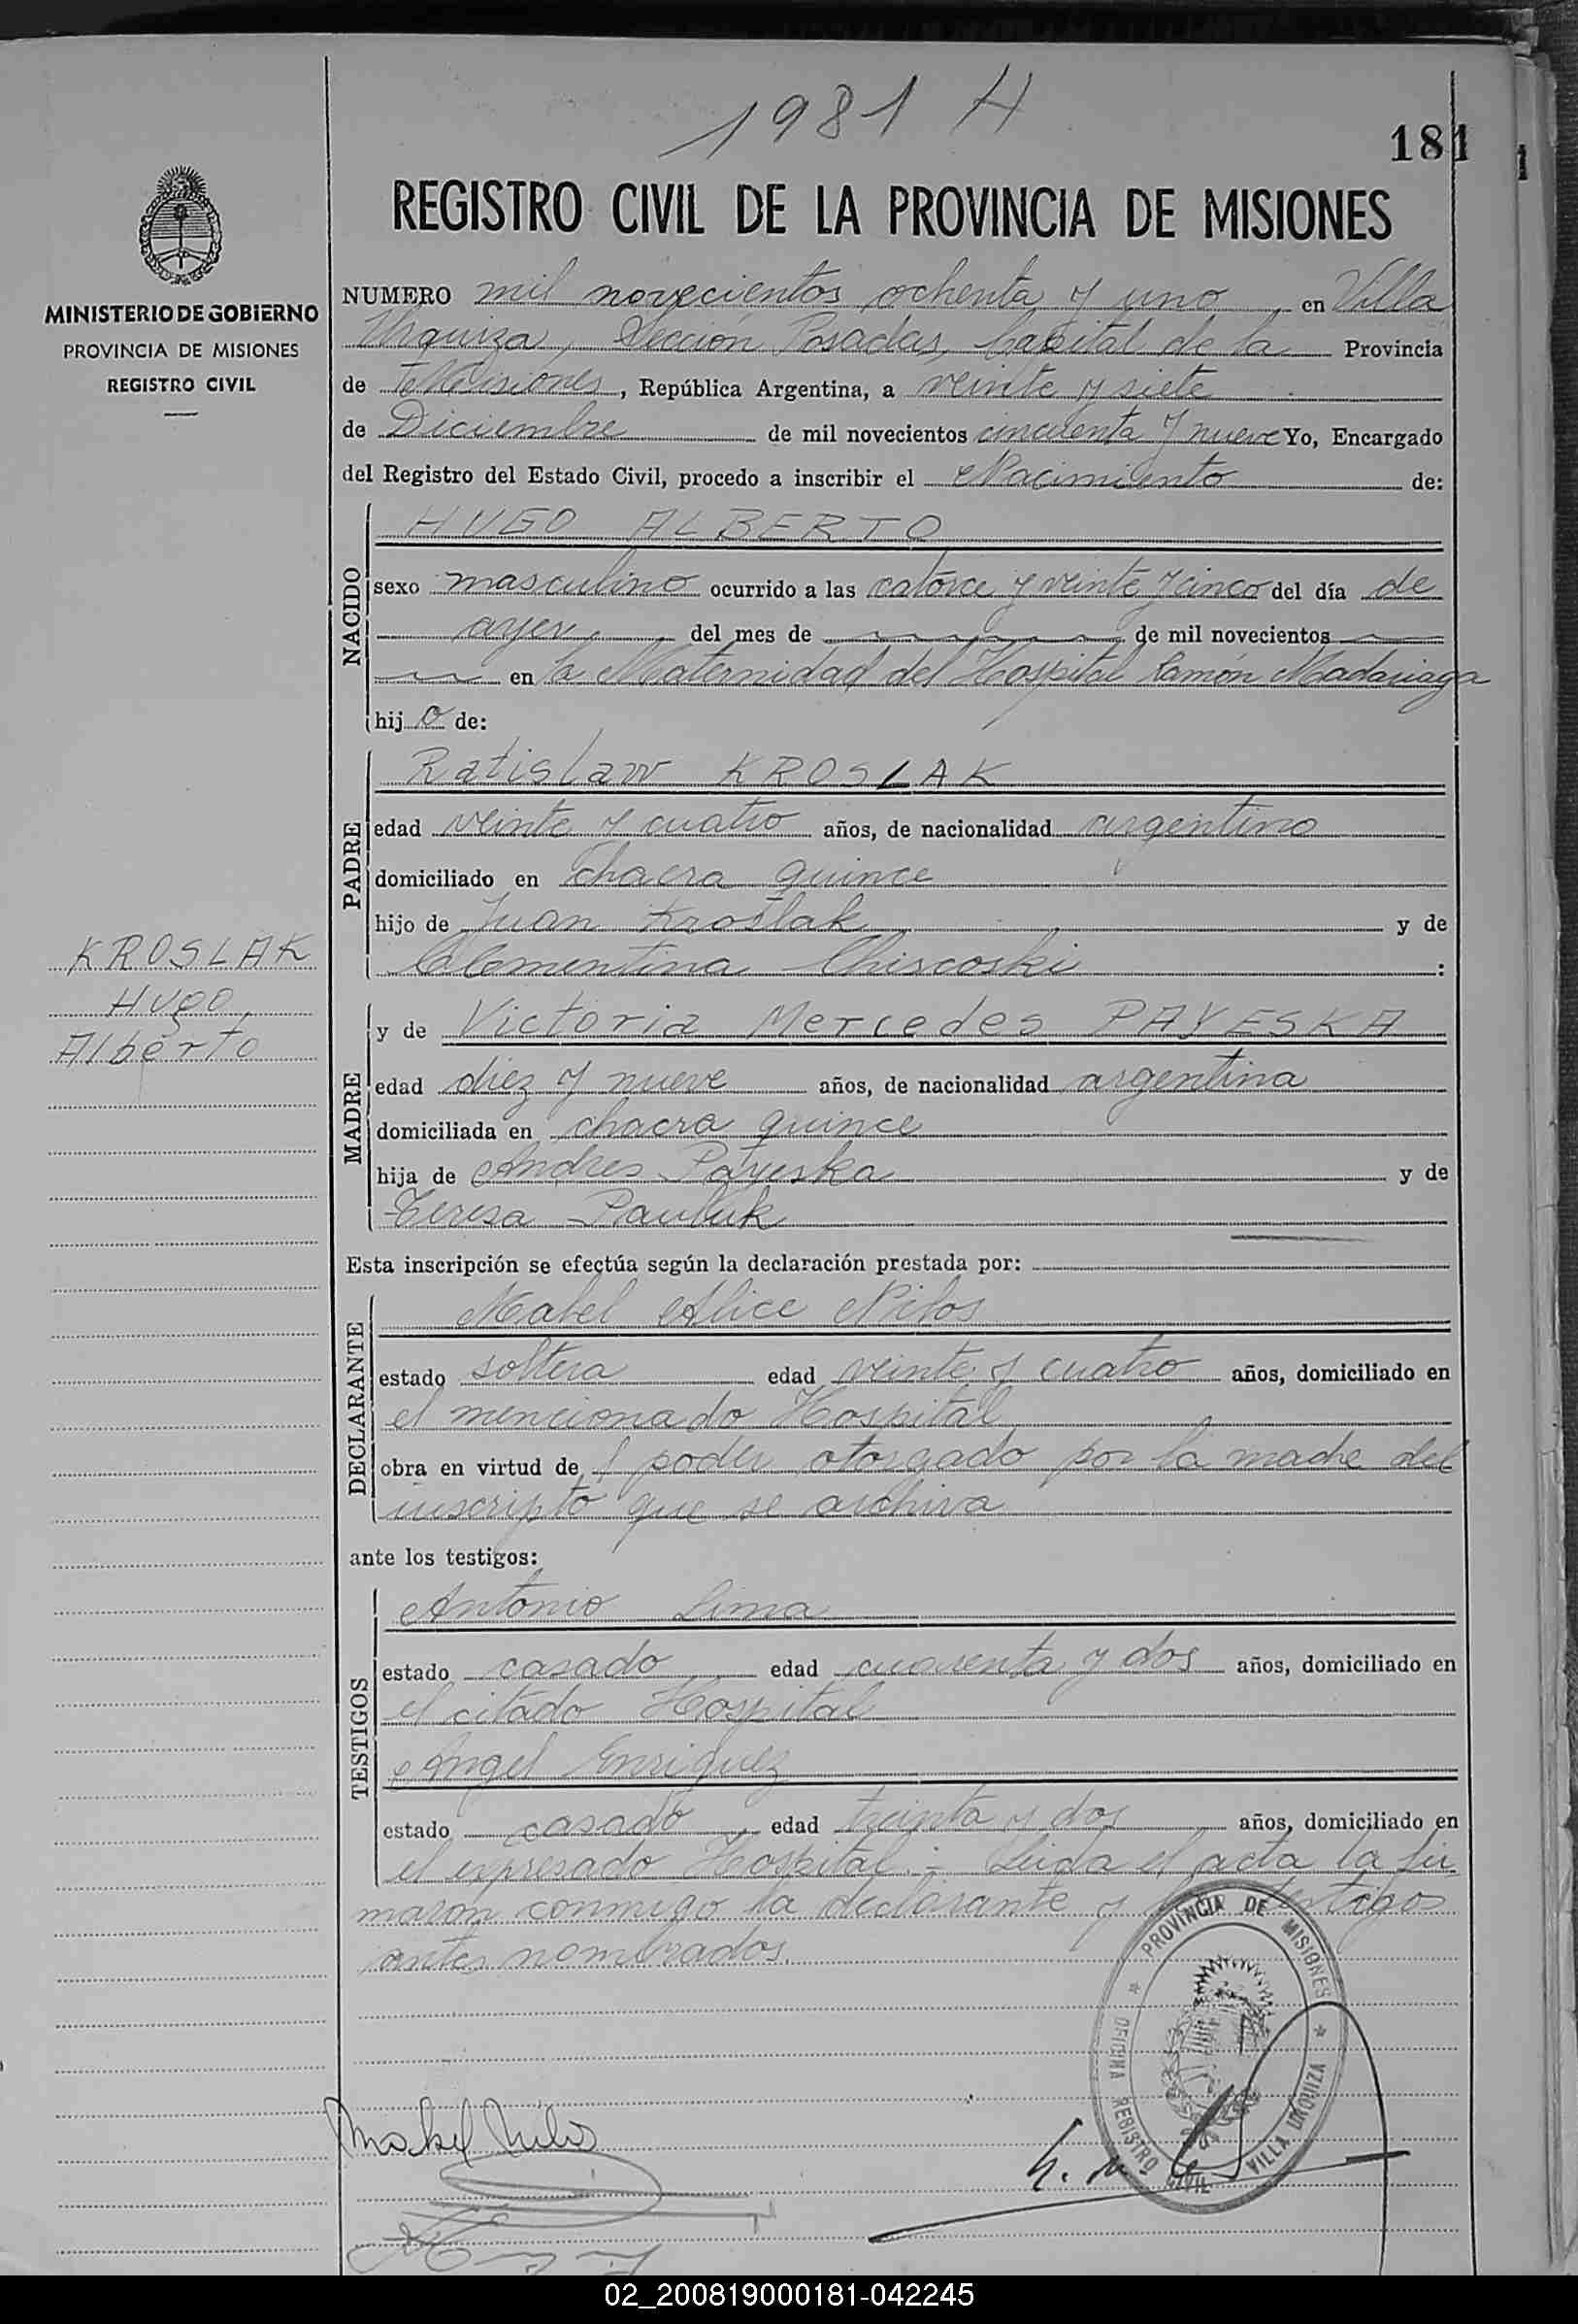 1981 H
181
1
MINISTERIO DE GOBIERNO
PROVINCIA DE MISIONES
REGISTRO CIVIL
REGISTRO CIVIL DE LA PROVINCIA DE MISIONES
NUMERO mil novecientos ochenta y uno en Villa
Urquiza, Sección Posadas, Capital de la Provincia
de Misiones, República Argentina, a veinte y siete
de Diciembre de mil novecientos cincuenta y nueve Yo, Encargado
del Registro del Estado Civil, procedo a inscribir el Nacimiento de:
NACIDO
HUGO ALBERTO
sexo masculino ocurrido a las catorce y veinte y cinco del día de
ayer, del mes de de mil novecientos
en la Maternidad del Hospital Ramón Madariaga
hijo de:
PADRE
Ratislaw KROSLAK
edad veinte y cuatro años, de nacionalidad argentino
domiciliado en chacra quince
hijo de Juan Kroslak y de
Clementina Chiscoski :
KROSLAK
HUGO
Alberto
MADRE
y de Victoria Mercedes PAYESKA
edad diez y nueve años, de nacionalidad argentina
domiciliada en chacra quince
hija de Andres Payeska y de
Teresa
Esta inscripción se efectúa según la declaración prestada por:
DECLARANTE
Mabel Alice
estado soltera edad veinte y cuatro años, domiciliado en
el mencionado Hospital
obra en virtud de poder otorgado por la madre del
inscripto que se archiva
ante los testigos:
TESTIGOS
Antonio Lima
estado casado edad cuarenta y dos años, domiciliado en
el citado Hospital
Angel Enriquez
estado casado edad treinta y dos años, domiciliado en
el expresado Hospital.- Leida el acta la fir
maron conmigo la declarante y los testigos
antes nombrados.
PROVINCIA DE MISIONES
OFICINA REGISTRO CIVIL
VILLA URQUIZA
Mabel
02_200819000181-042245